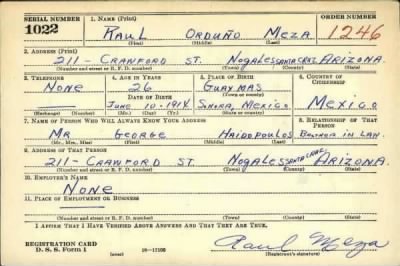 SERIAL NUMBER 1. NAME (Print) ORDER NUMBER
1022 RAUL ORDUÑO MEZA 1246
(First) (Middle) (Last)
2. ADDRESS (Print)
211- CRAWFORD ST. NOGALES SANTA CRUZ ARIZONA.
(Number and street or R. F. D. number) (Town) (County) (State)
3. TELEPHONE 4. AGE IN YEARS 5. PLACE OF BIRTH 6. COUNTRY OF CITIZENSHIP
NONE 26 GUAYMAS
DATE OF BIRTH (Town or county)
JUNE 10-1914 SONORA, MEXICO MEXICO
(Exchange) (Number) (Mo.) (Day) (Yr.) (State or country)
7. NAME OF PERSON WHO WILL ALWAYS KNOW YOUR ADDRESS 8. RELATIONSHIP OF THAT PERSON
MR GEORGE HAIDOPOULOS BROTHER IN LAW.
(Mr., Mrs., Miss) (First) (Middle) (Last)
9. ADDRESS OF THAT PERSON
211- CRAWFORD ST. NOGALES SANTA CRUZ ARIZONA.
(Number and street or R. F. D. number) (Town) (County) (State)
10. EMPLOYER'S NAME
NONE
11. PLACE OF EMPLOYMENT OR BUSINESS
(Number and street or R. F. D. number) (Town) (County) (State)
I AFFIRM THAT I HAVE VERIFIED ABOVE ANSWERS AND THAT THEY ARE TRUE.
REGISTRATION CARD
D. S. S. Form 1 (over) 16-17105 Raul Meza
(Registrant's signature)